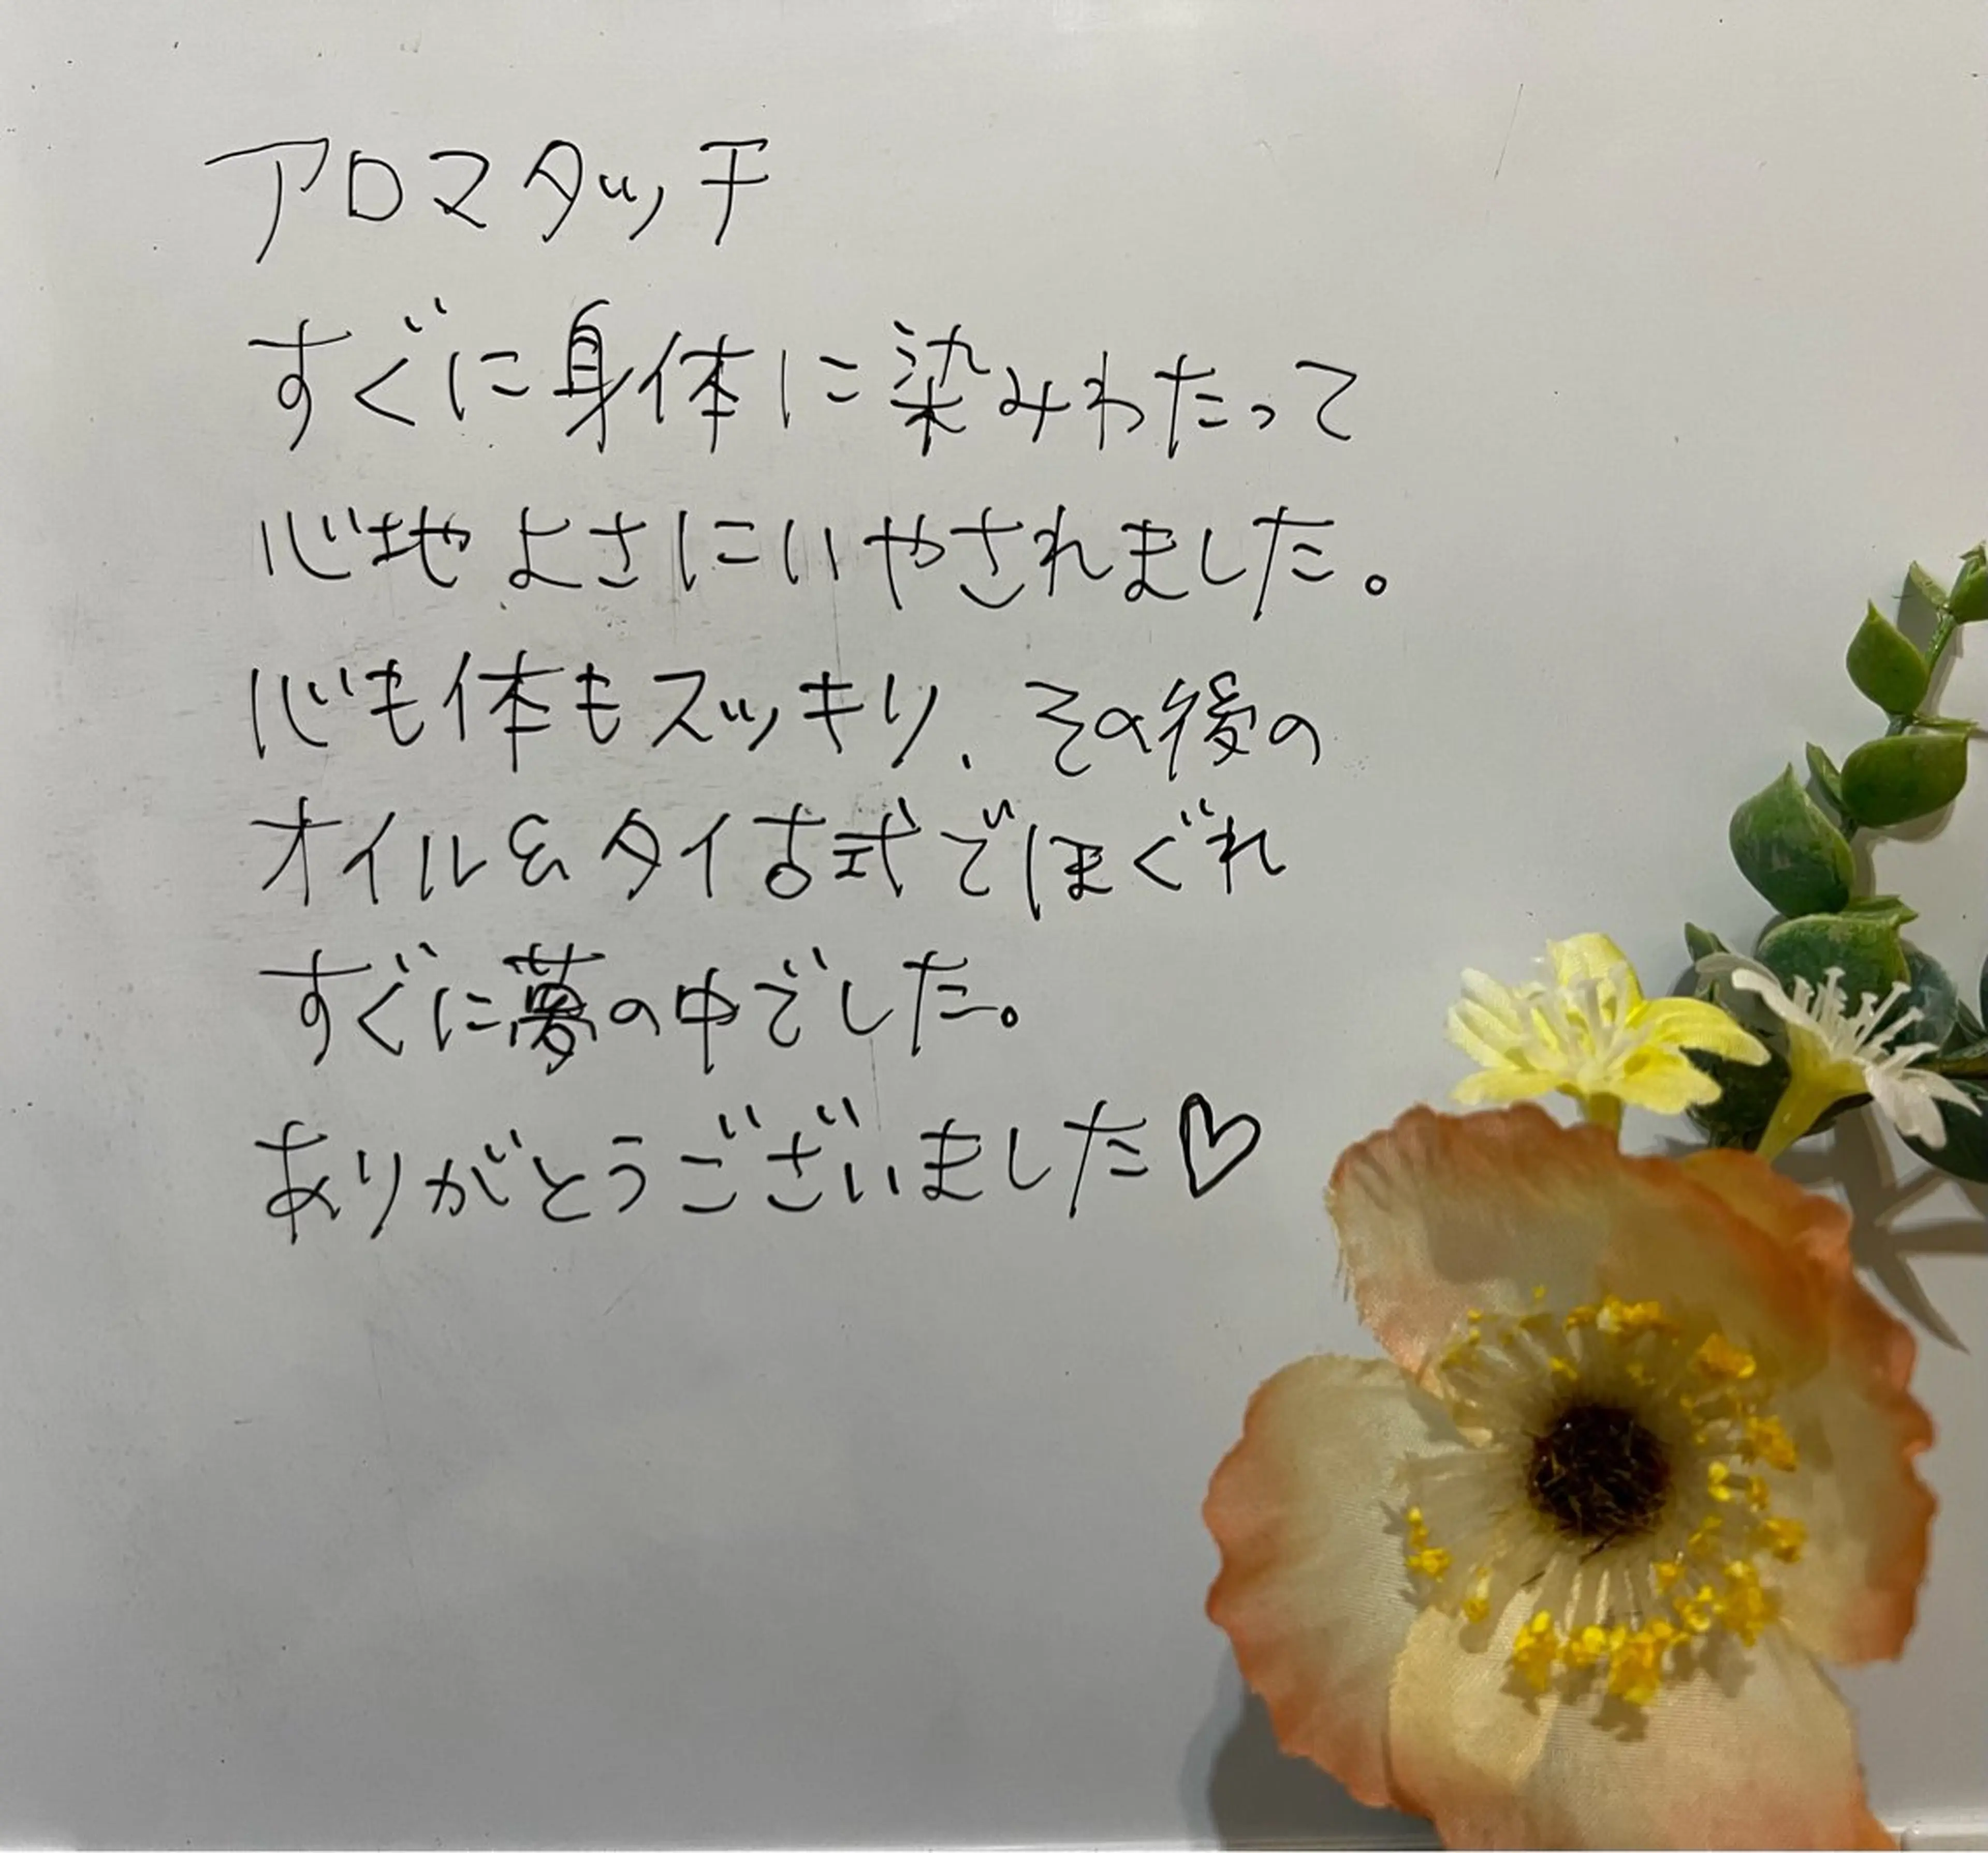 アロマタッチ
すぐに身体に染みわたって
心地よさにいやされました。
心も体もスッキリ、その後の
オイル&タイ古式でほぐれ
すぐに夢の中でした。
ありがとうございました♡